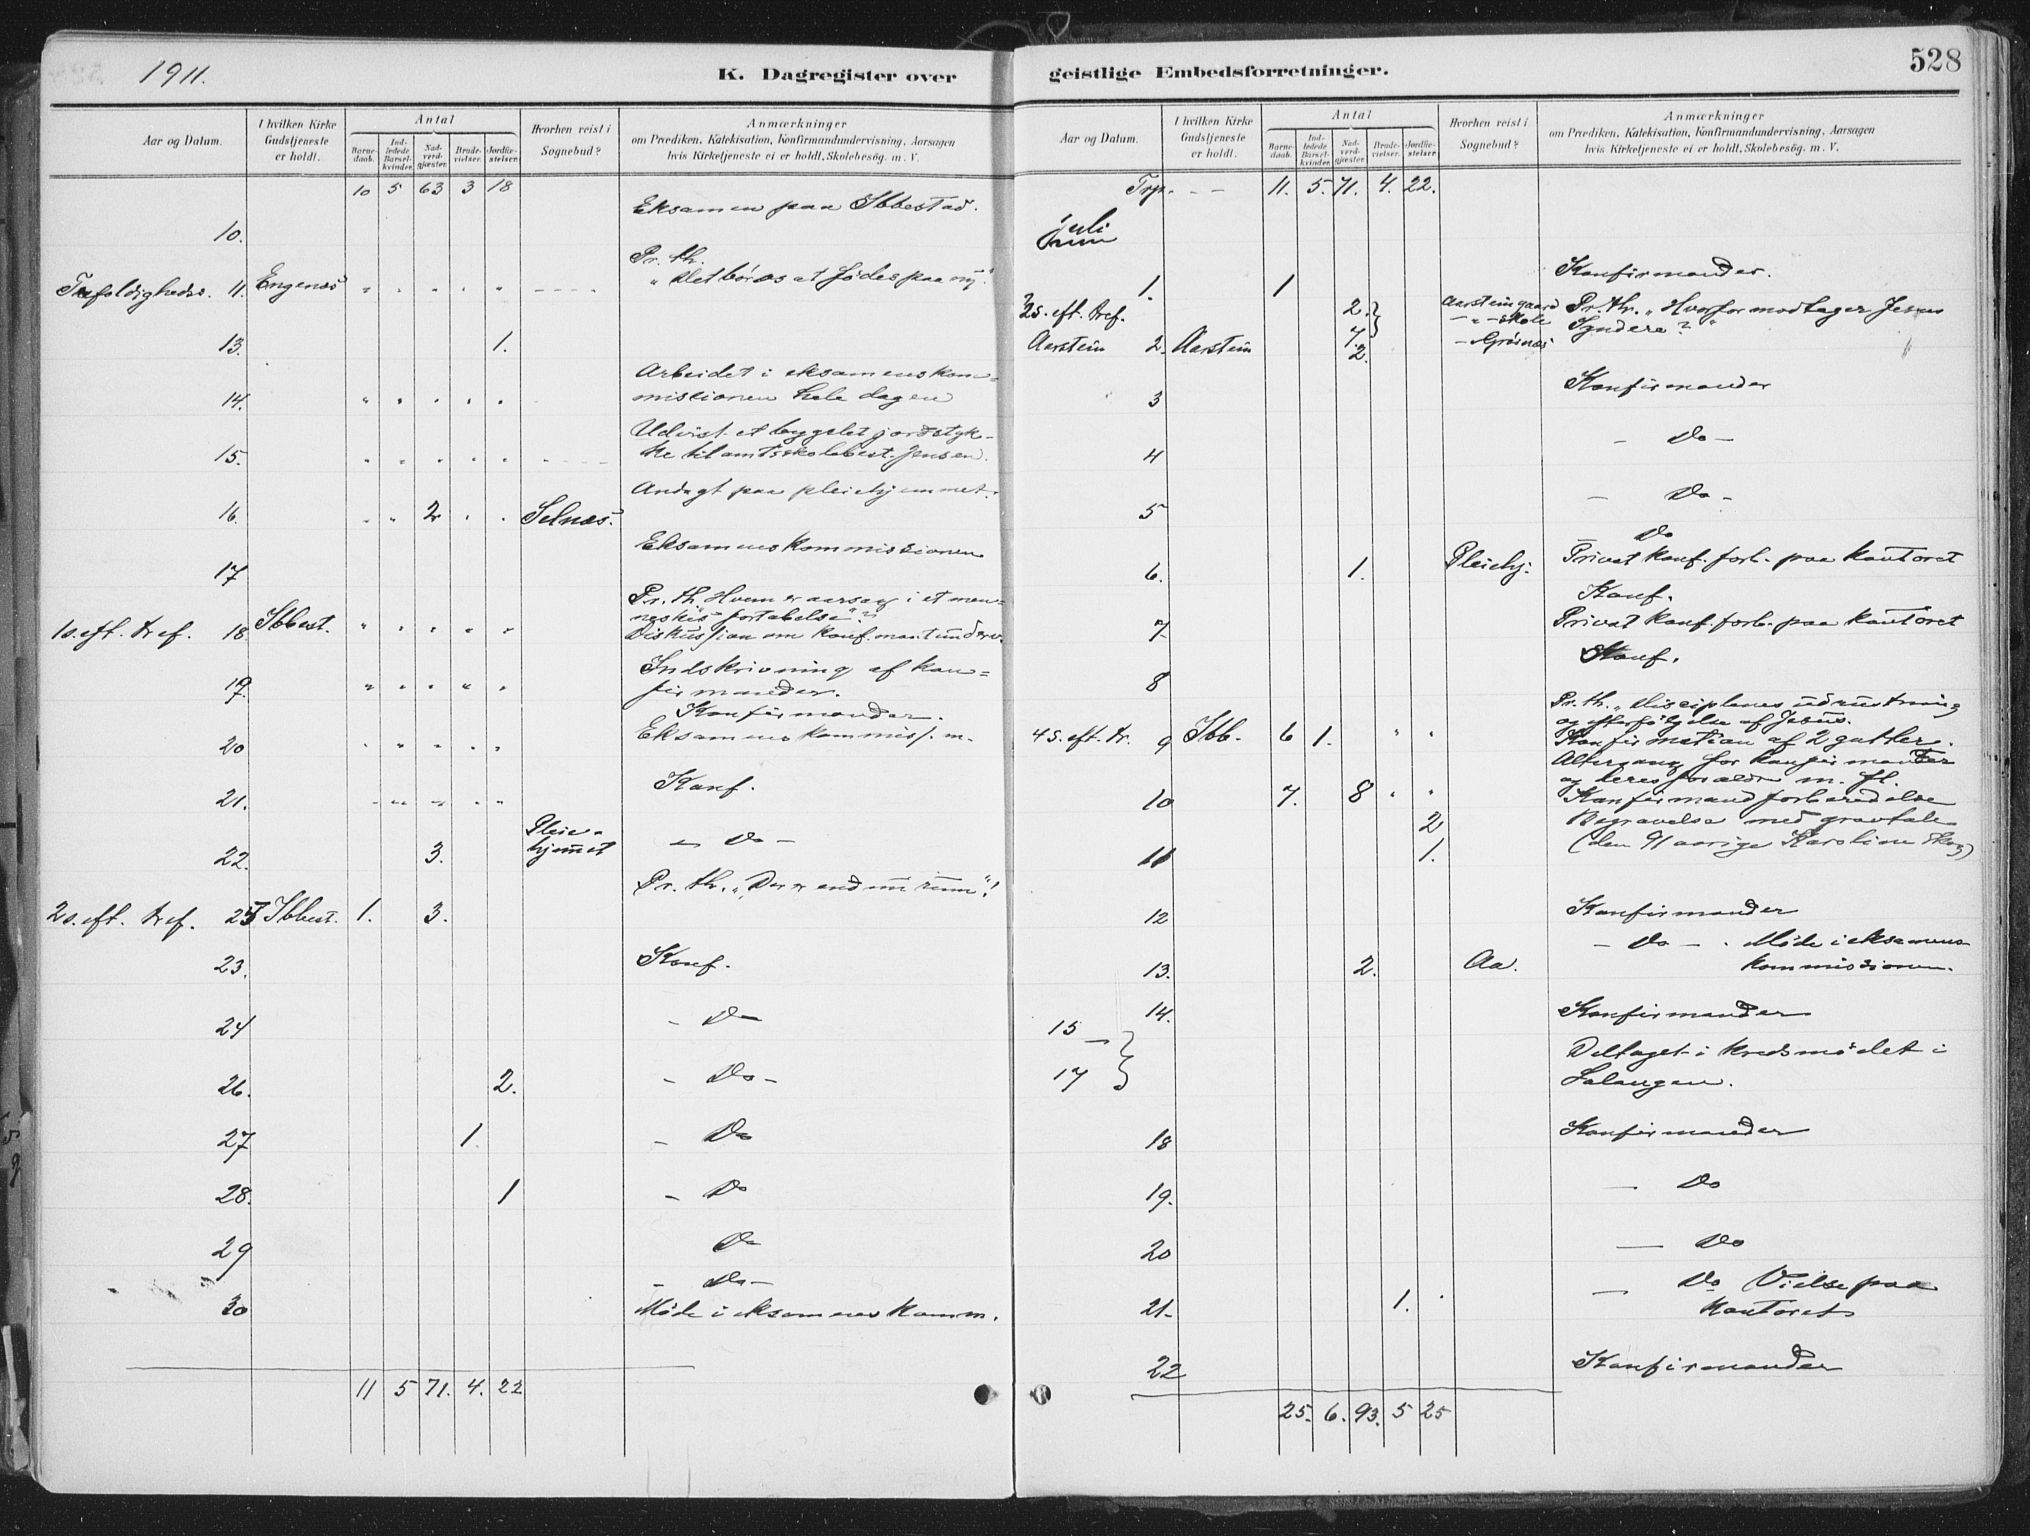 1911.
K. Dagregister over
Aar og Datum.
I hvilken Kirke Gudstjeneste er holdt.
Antal
Barne-daab.
Ind-ledede Barsel-kvinder.
Nad-verd-gjæster.
Brude-vielser.
Jordfæ-stelser.
Hvorhen reist i Sognebud?
Anmærkninger
om Prædiken, Katekisation, Konfirmandundervisning, Aarsagen
hvis Kirketjeneste ei er holdt, Skolebesög. m. V.
10 5 63 3 18
Eksamen paa Ibbestad.
10.
Pr. th.
11. Engenes " " " " " - - - - "Det at fødes paa ny."
13. 1.
Arbeidet i eksamenskom=
14. " " " " " missionen hele dagen
Udvist et bygslet jordstyk-
15. " " " " " - - - - ke til amtsskolebest. Jensen.
Andagt paa pleiehjemmet.
16. " " 2 " " Selnæs.
Eksamenskommissionen
17
Pr. th. Hvem er aarsag i et men-
neskes fortabelse"?
1 s. eft. tref. 18. Ibbest. " " " " " Diskussion om konf.
Indskrivning af kon=
19. " " " " " firmander.
Konfirmander.
20 " " " " " Eksamenskommiss. m.
21. " " " " " Konf.
22. 3. Pleie-hjemmet - Do -
Pr. th. "Der er endnu rum"!
2 s. eft. tref. 25 Ibbest. 1. 3.
23. Konf.
24 - Do
26. 2. - Do -
27 1. - Do
28. 1 - Do
29 Do
- Do -
30 Møde i eksamenskomm.
11 5 71. 4. 22
528
geistlige Embedsforretninger.
Aar og Datum.
I hvilken Kirke Gudstjeneste er holdt.
Antal
Barne-daab.
Ind-ledede Barsel-kvinder.
Nad-verd-gjæster.
Brude-vielser.
Jordfæ-stelser.
Hvorhen reist i Sognebud?
Anmærkninger
om Prædiken, Katekisation, Konfirmandundervisning, Aarsagen
hvis Kirketjeneste ei er holdt, Skolebesög. m. V.
Trp. - - 11. 5. 71. 4. 22.
Juli
1. 1 Konfirmander.
eft. tref. 2. Aarsteingaard Pr. th. "Hvorfor modtager Jesus
7. - " - skole Syndere?"
Aarstein 2. Aarstein 2. - Grøsnæs
3 Konfirmander
4 - Do -
5 - Do -
Do
6. 1. Pleiehj. Privat konf. forb. paa kontoret
Konf.
7 Privat konf. forb. paa kontoret
8 Konf.
Pr. th. "Disciplenes udrustning
og efterfølgelse af Jesus.
4 s. eft. tr. 9 Ibb. 6 1. " " Konfirmation af 2 gutter.
Altergang for konfirmander
og deres forældre m. fl.
10 7. 8 " " Konfirmandforberedelse
2 Begravelse med gravtale
11 1. (den 91 aarige Karoline Skog)
12 Konfirmander
- Do - . Møde i eksamens-
13. 2. Aa. kommissionen.
14. Konfirmander
15 - 17 Deltaget i kredsmødet i
Salangen.
18 Konfirmander
19. - Do
20 - Do
- Do Vielse paa
21. 1. kontoret
22 Konfirmander
25. 6. 93. 5 25